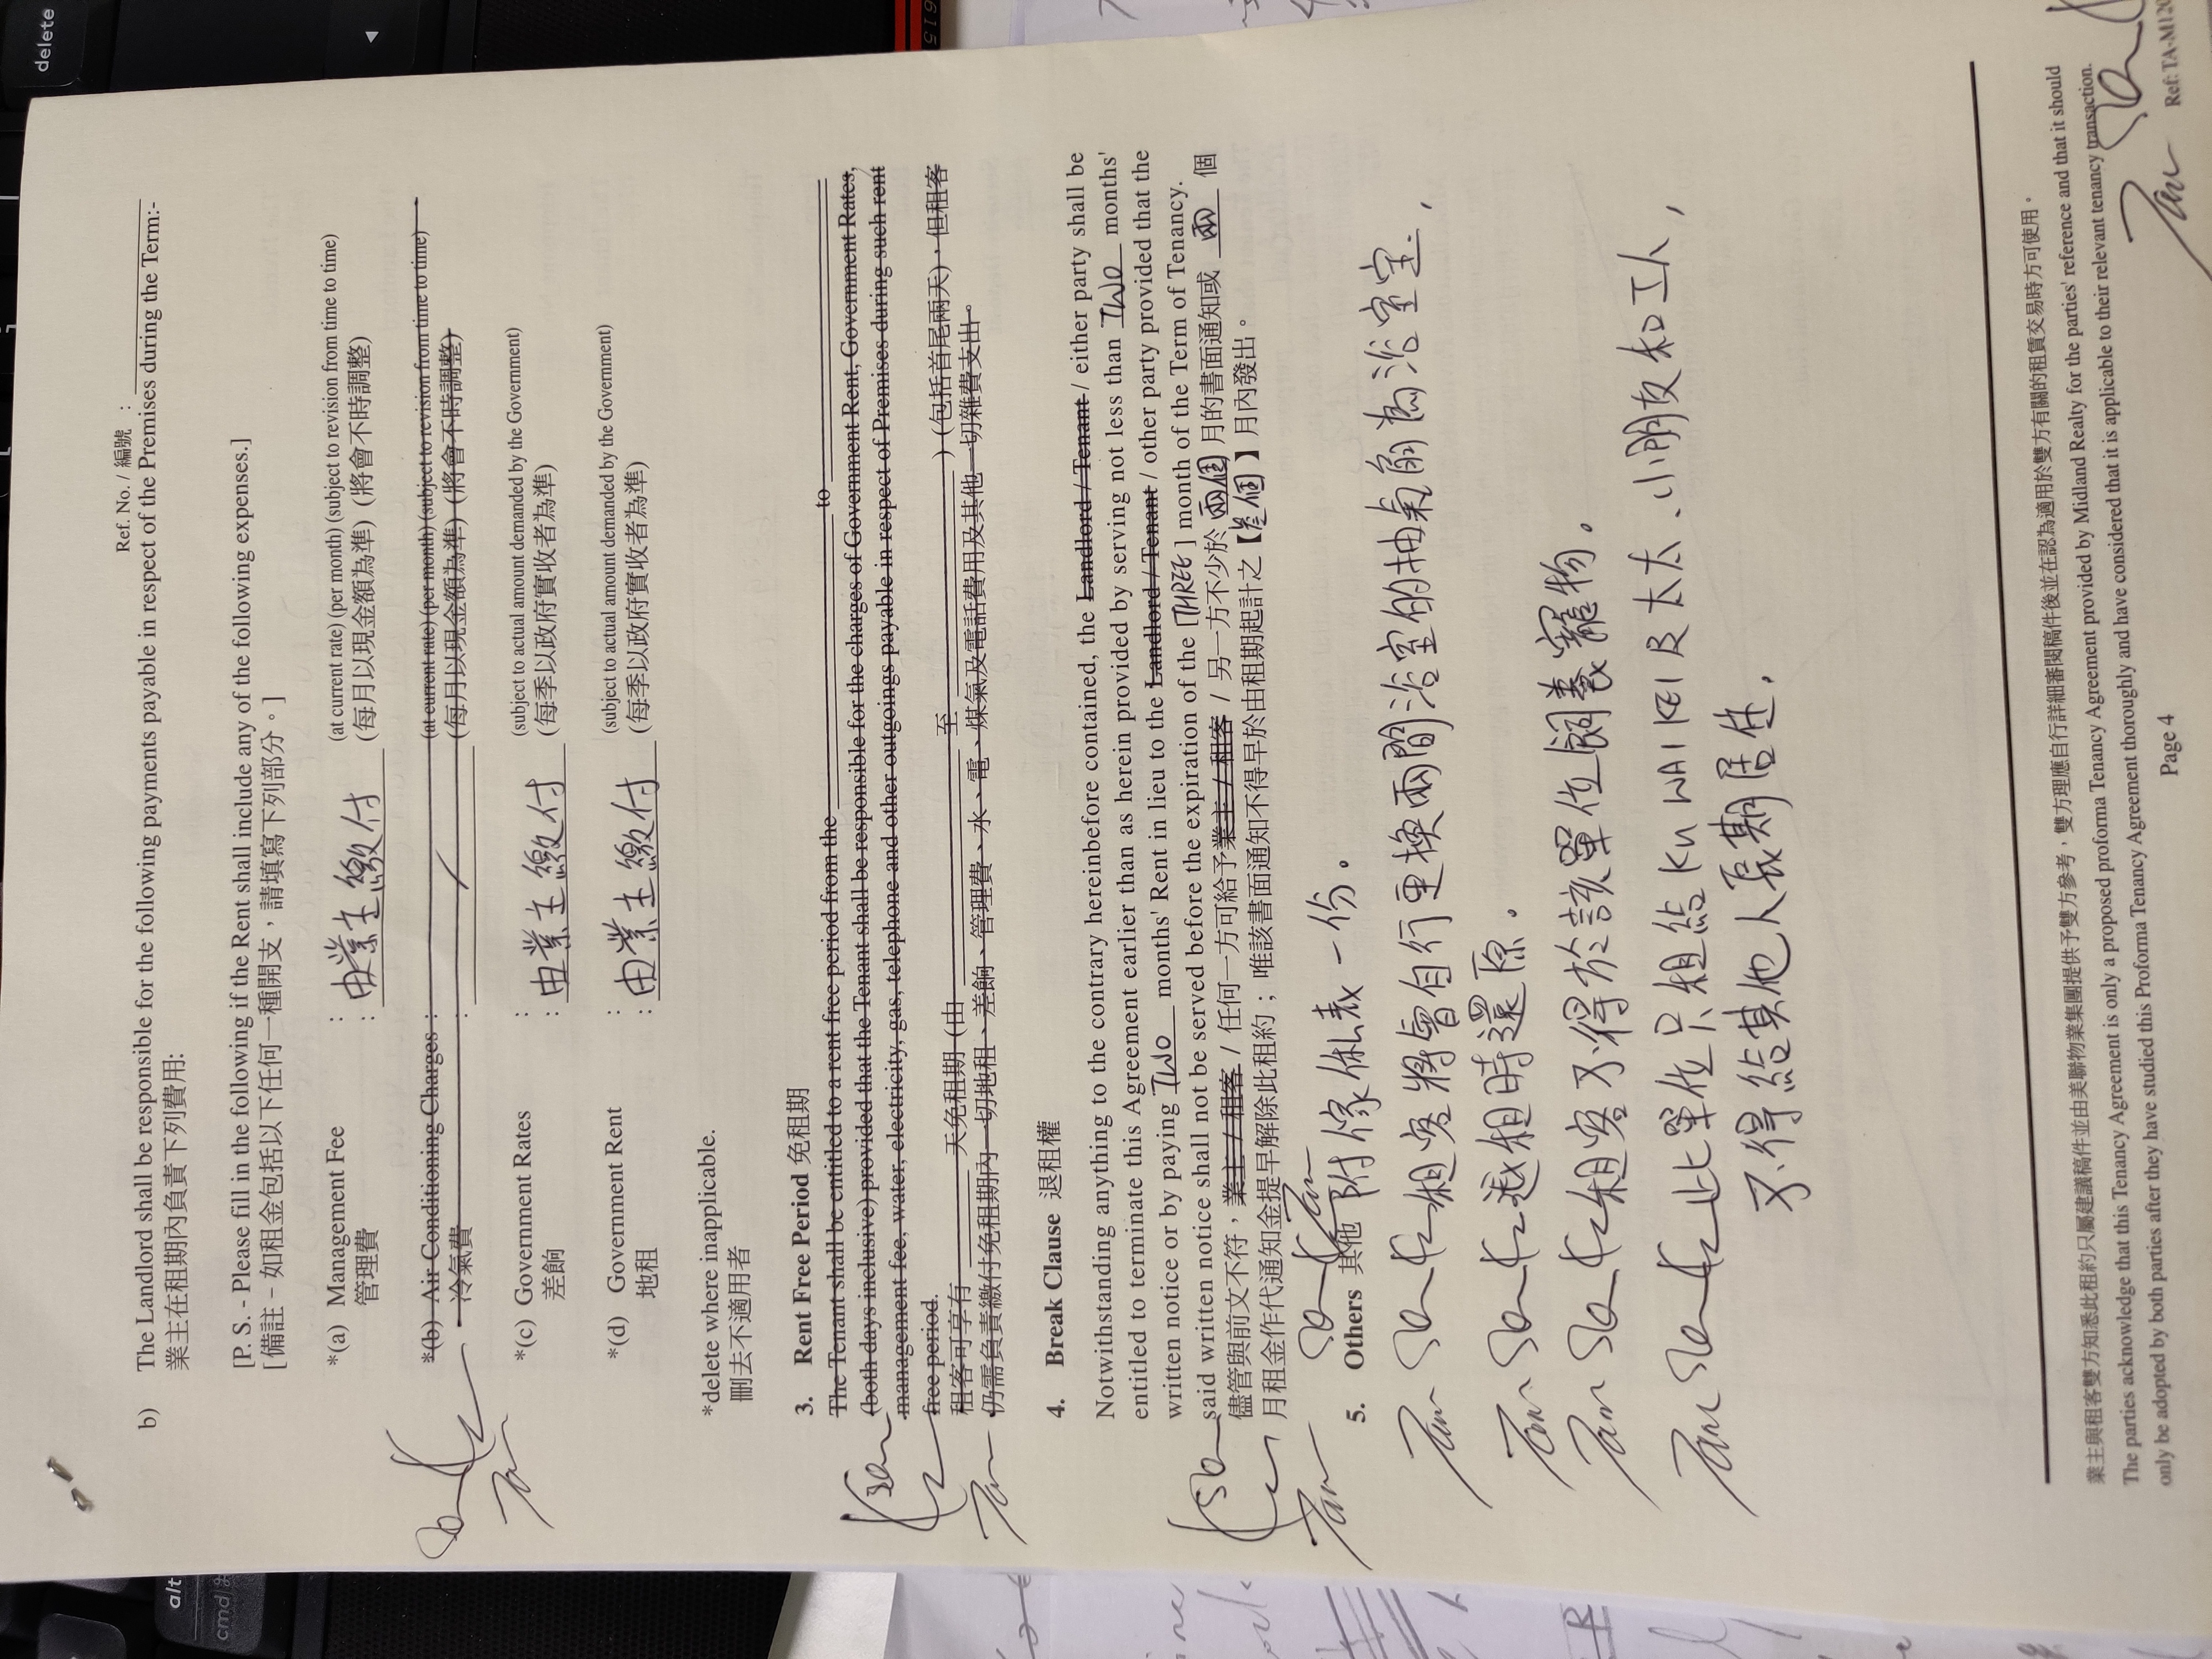 Ref. No. / 編號 :
b) The Landlord shall be responsible for the following payments payable in respect of the Premises during the Term:-
業主在租期內負責下列費用:
[P. S. - Please fill in the following if the Rent shall include any of the following expenses.]
[備註 - 如租金包括以下任何一種開支，請填寫下列部分。]
*(a) Management Fee : (at current rate) (per month) (subject to revision from time to time)
管理費 : 由業主繳付 (每月以現金額為準) (將會不時調整)
*(b) Air Conditioning Charges : (at current rate) (per month) (subject to revision from time to time)
冷氣費 : (每月以現金額為準) (將會不時調整)
*(c) Government Rates : (subject to actual amount demanded by the Government)
差餉 : 由業主繳付 (每季以政府實收者為準)
*(d) Government Rent : (subject to actual amount demanded by the Government)
地租 : 由業主繳付 (每季以政府實收者為準)
*delete where inapplicable.
刪去不適用者
3. Rent Free Period 免租期
The Tenant shall be entitled to a rent free period from the to
(both days inclusive) provided that the Tenant shall be responsible for the charges of Government Rent, Government Rates,
management fee, water, electricity, gas, telephone and other outgoings payable in respect of Premises during such rent
free period.
租客可享有 天免租期 (由 至 ) (包括首尾兩天)，但租客
仍需負責繳付免租期內一切地租、差餉、管理費、水、電、煤氣及電話費用及其他一切雜費支出。
4. Break Clause 退租權
Notwithstanding anything to the contrary hereinbefore contained, the Landlord / Tenant / either party shall be
entitled to terminate this Agreement earlier than as herein provided by serving not less than TWO months'
written notice or by paying TWO months' Rent in lieu to the Landlord / Tenant / other party provided that the
said written notice shall not be served before the expiration of the [THREE] month of the Term of Tenancy.
儘管與前文不符，業主 / 租客 / 任何一方可給予業主 / 租客 / 另一方不少於 兩個 月的書面通知或 兩 個
月租金作代通知金提早解除此租約；唯該書面通知不得早於由租期起計之【叁個】月內發出。
5. Others 其他 附傢俬表一份。
租客將會自行更換兩間浴室的抽氣扇為浴室宝.
退租時還原.
租客不得於該單位飼養寵物.
此單位只租給 KU WAI KEI 及太太、小朋友和工人,
不得給其他人長期居住.
業主與租客雙方知悉此租約只屬建議稿件並由美聯物業集團提供予雙方參考，雙方理應自行詳細審閱稿件後並在認為適用於雙方有關的租賃交易時方可使用。
The parties acknowledge that this Tenancy Agreement is only a proposed proforma Tenancy Agreement provided by Midland Realty for the parties' reference and that it should
only be adopted by both parties after they have studied this Proforma Tenancy Agreement thoroughly and have considered that it is applicable to their relevant tenancy transaction.
Page 4
Ref: TA-M1120
delete
alt
cmd
615